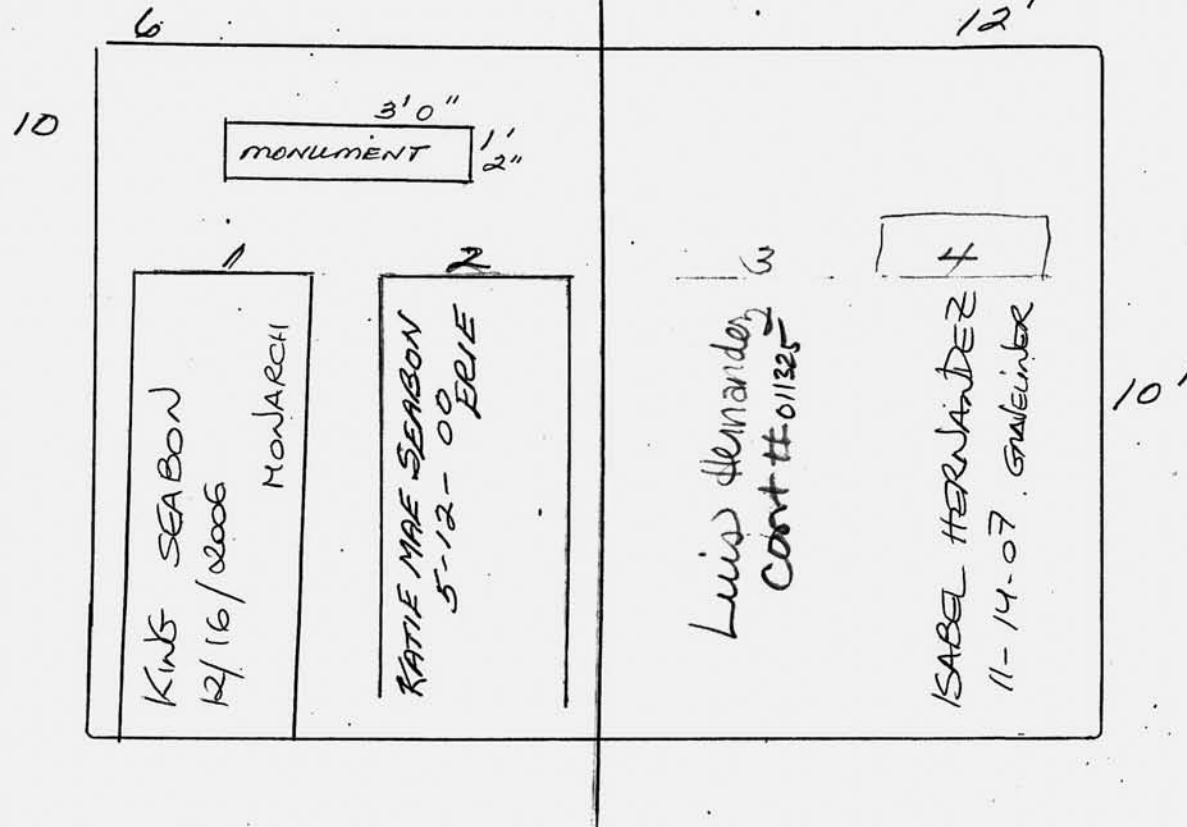 6
12'
10
3'0"
MONUMENT
1'
2"
1
2
3
4
KING SEABON
12/16/2006
MONARCH
KATIE MAE SEABON
5-12-00
ERIE
Luis Hernandez
Cont # 011325
ISABEL HERNANDEZ
11-14-07 GRAVELINER
10'